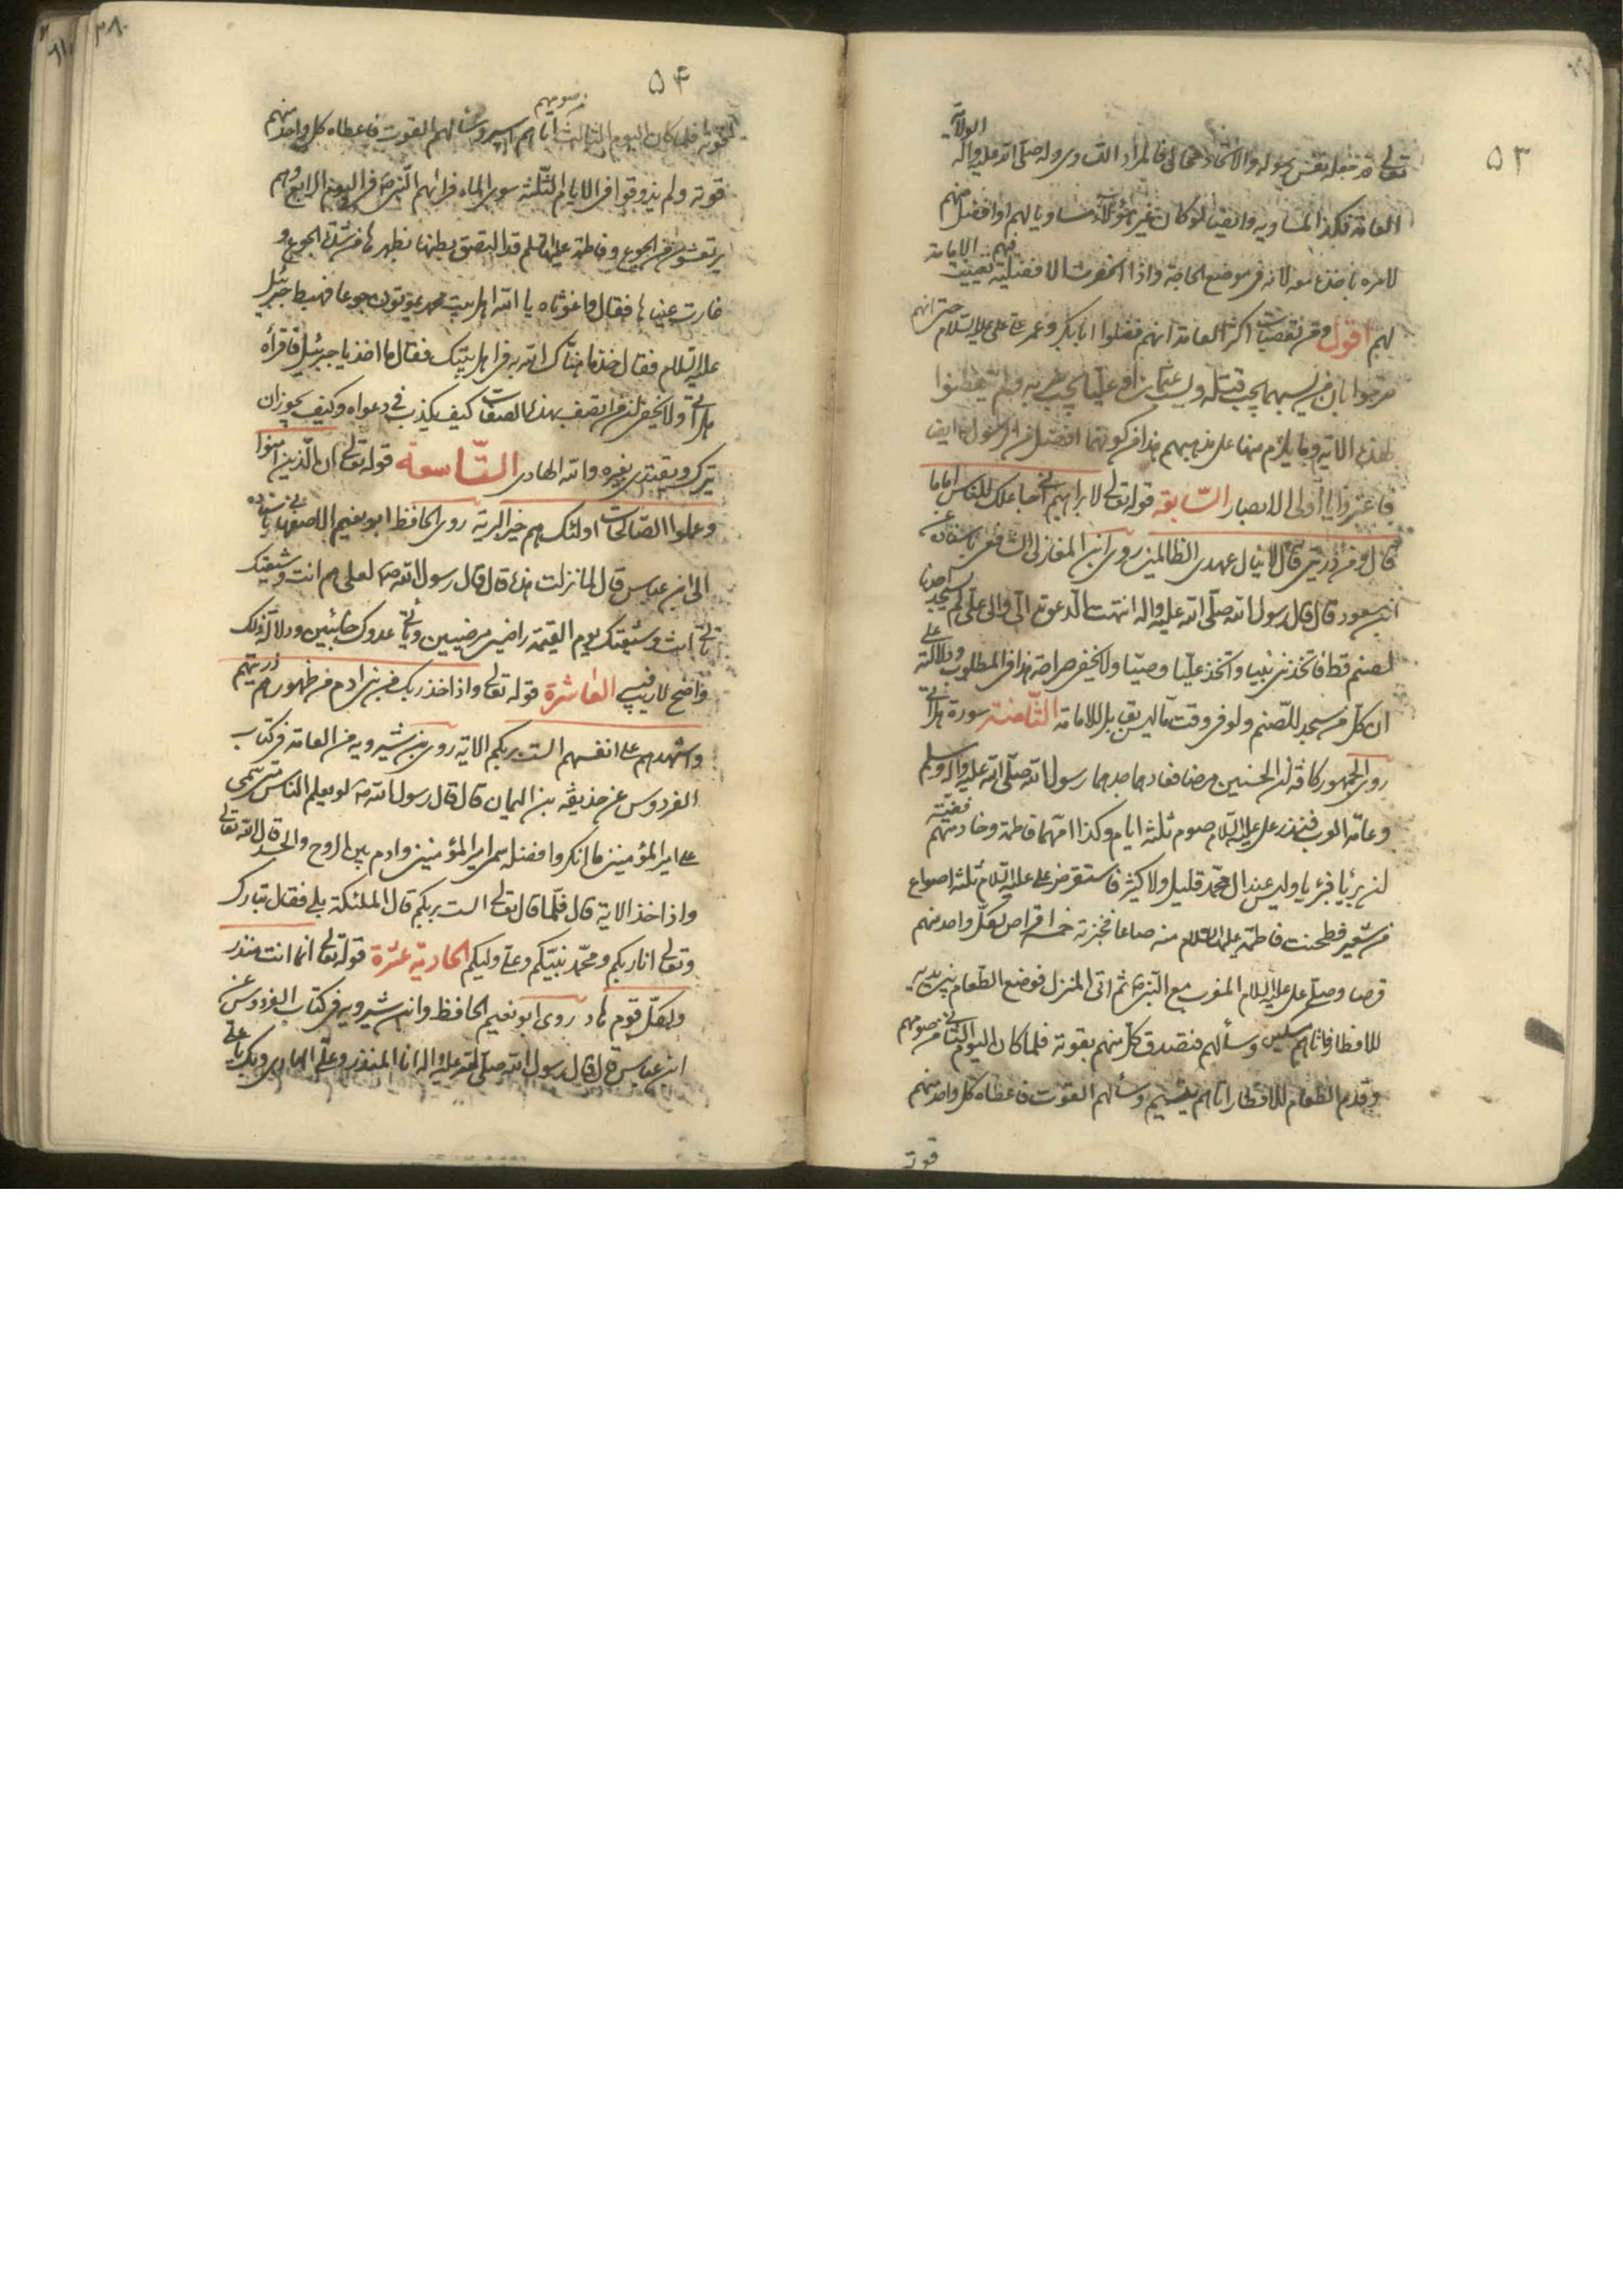 ٥٣
تعالى قد جعله نفس رسوله والاتحاد محال فالمراد التساوى وله صلى الله عليه واله الولاية
العامة فكذا المساويه وايضا لو كان غير هؤلاء مساويا لهم او افضل منهم
لامره باخذه معه لانه فى موضع الحاجة واذا انحصرت الافضلية فيهم تعينت الامامة
لهم اقول ومن تعصبات اكثر العامة انهم فضلوا ابابكر وعمر على على عليه السلام حتى انهم
صرحوا بان من يسبهما يجب قتله ويسب عثمان او عليا يجب ضربه ولم يتفطنوا
لهذه الاية وما يلزم منها على مذهبهم هذا من كونهما افضل من الرسول ايضا
فاعتبروا يا اولى الابصار السّابعة قوله تعالى لابراهيم انى جاعلك للناس اماما
قال ومن ذريتى قال لا ينال عهدى الظالمين روى ابن المغازلى الشافعى باسناده عن
ابن مسعود قال قال رسول الله صلى الله عليه واله انتهت الدعوة الىّ والى علىّ لم يسجد احدنا
لصنم قط فاتخذنى نبيا واتخذ عليّا وصيّا ولا يخفى صراحة هذا فى المطلوب ودلالته على
ان كل من سجد للصنم ولو فى وقت ما لم يقابل للامامة الثّامنة سورة هل اتى
روى الجمهور كافة ان الحسنين مرضا فعادهما جدهما رسول الله صلى الله عليه واله وسلم
وعامّة العرب فنذر على عليه السلام صوم ثلثة ايام وكذا امّهما فاطمة وخادمتهم فضّة
لئن برئا فبرئا وليس عند ال محمّد قليل ولا كثير فاستقرض على عليه السلام ثلثة اصواع
من شعير فطحنت فاطمة عليها السلام منه صاعا فخبزته خمسة اقراص لكل واحد منهم
قرصا وصلى على عليه السلام المغرب مع النبى ص ثم اتى المنزل فوضع الطعام بين يديه
للافطار فاتاهم مسكين وسألهم فتصدق كل منهم بقوته فلما كان اليوم الثانى من صومهم
وقدم الطعام للافطار اتاهم يتيم وسألهم القوت فاعطاه كل واحد منهم
قوته
٥٤
قوته فلما كان اليوم الثالث من صومهم اتاهم اسير وسألهم القوت فاعطاه كل واحد منهم
قوته ولم يذوقوا فى الايام الثلثة سوى الماء فرائهم النبى ص فى اليوم الرابع وهم
يرتعشون من الجوع وفاطمة عليها السلام قد التصق بطنها بظهرها من شدة الجوع و
غارت عيناها فقال واغوثاه يا الله اهل بيت محمد يموتون جوعا فهبط جبرئيل
عليه السلام فقال خذ ما هنّاك الله به فى اهل بيتك فقال ما اخذ يا جبرئيل فاقرأه
هل اتى ولا يخفى ان من اتصف بهذه الصفات كيف يكذب فى دعواه وكيف يجوز ان
يترك ويقتدى بغيره والله الهادى التّاسعة قوله تعالى ان الّذين امنوا
وعملوا الصّالحات اولئك هم خير البرية روى الحافظ ابو نعيم الاصفهانى باسناده
الى ابن عباس قال لما نزلت هذه قال قال رسول الله ص لعلى هم انت وشيعتك
تأتى انت وشيعتك يوم القيمة راضين مرضيين ويأتى عدوك خائبين ودلالة ذلك
واضح لا ريب فيه العاشرة قوله تعالى واذ اخذ ربك من بنى ادم من ظهورهم ذريتهم
واشهدهم على انفسهم الست بربكم الاية روى بن شيرويه من العامة فى كتاب
الفردوس عن حذيفة بن اليمان قال قال رسول الله ص لو يعلم الناس متى سمّى
على امير المؤمنين ما انكروا فضله سمى امير المؤمنين وادم بين الروح والجسد قال الله تعالى
واذ اخذ الاية قال فلما قال تعالى الست بربكم قال الملئكة بلى فقال تبارك
وتعالى انا ربكم ومحمّد نبيّكم وعلى وليكم الحادية عشرة قوله تعالى انما انت منذر
ولكلّ قوم هاد روى ابو نعيم الحافظ وابن شيرويه فى كتاب الفردوس عن
ابن عباس قال قال رسول الله صلى الله عليه واله انا المنذر وعلى الهادى وبك يا على